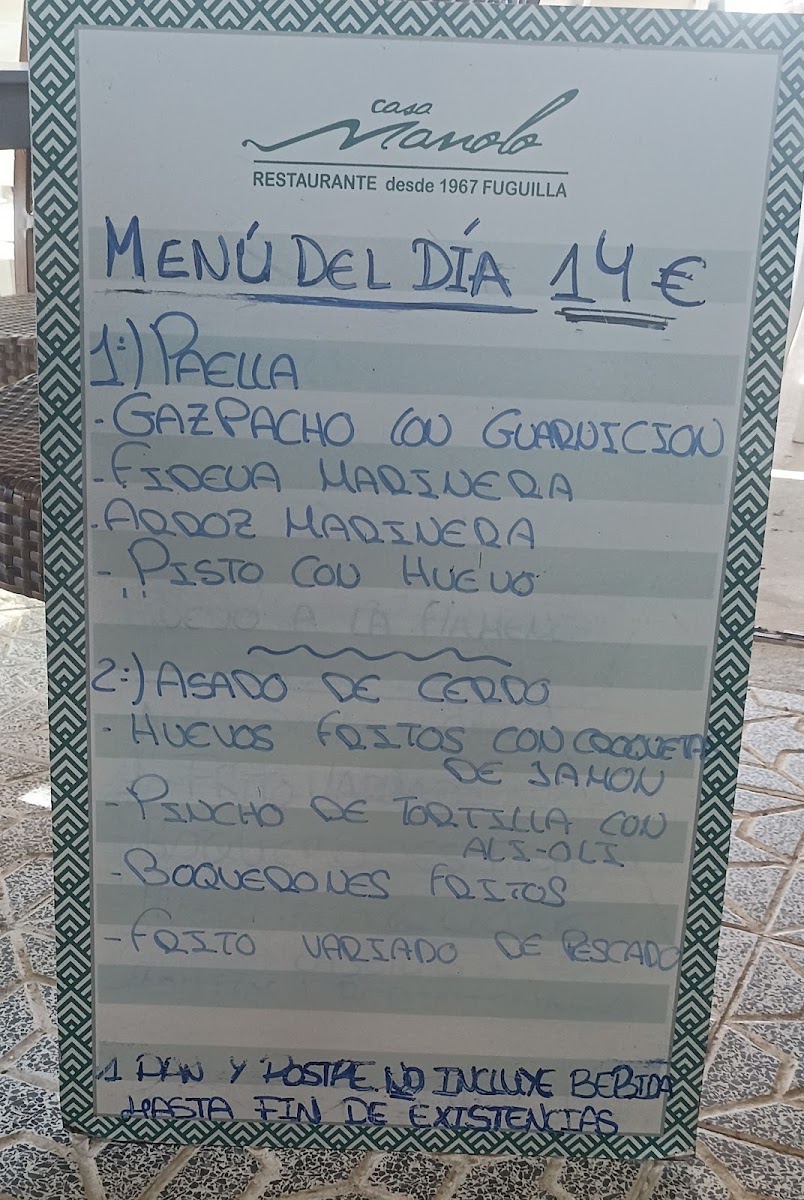 casa
Manolo
RESTAURANTE desde 1967 FUGUILLA
MENÚ DEL DÍA 14€
1:) PAELLA
- GAZPACHO CON GUARNICION
- FIDEUA MARINERA
- ARROZ MARINERA
- PISTO CON HUEVO
2:) ASADO DE CERDO
- HUEVOS FRITOS CON CROQUETAS
DE JAMON
- PINCHO DE TORTILLA CON
ALI-OLI
- BOQUERONES FRITOS
- FRITO VARIADO DE PESCADO
1 PAN Y POSTRE NO INCLUYE BEBIDA
HASTA FIN DE EXISTENCIAS